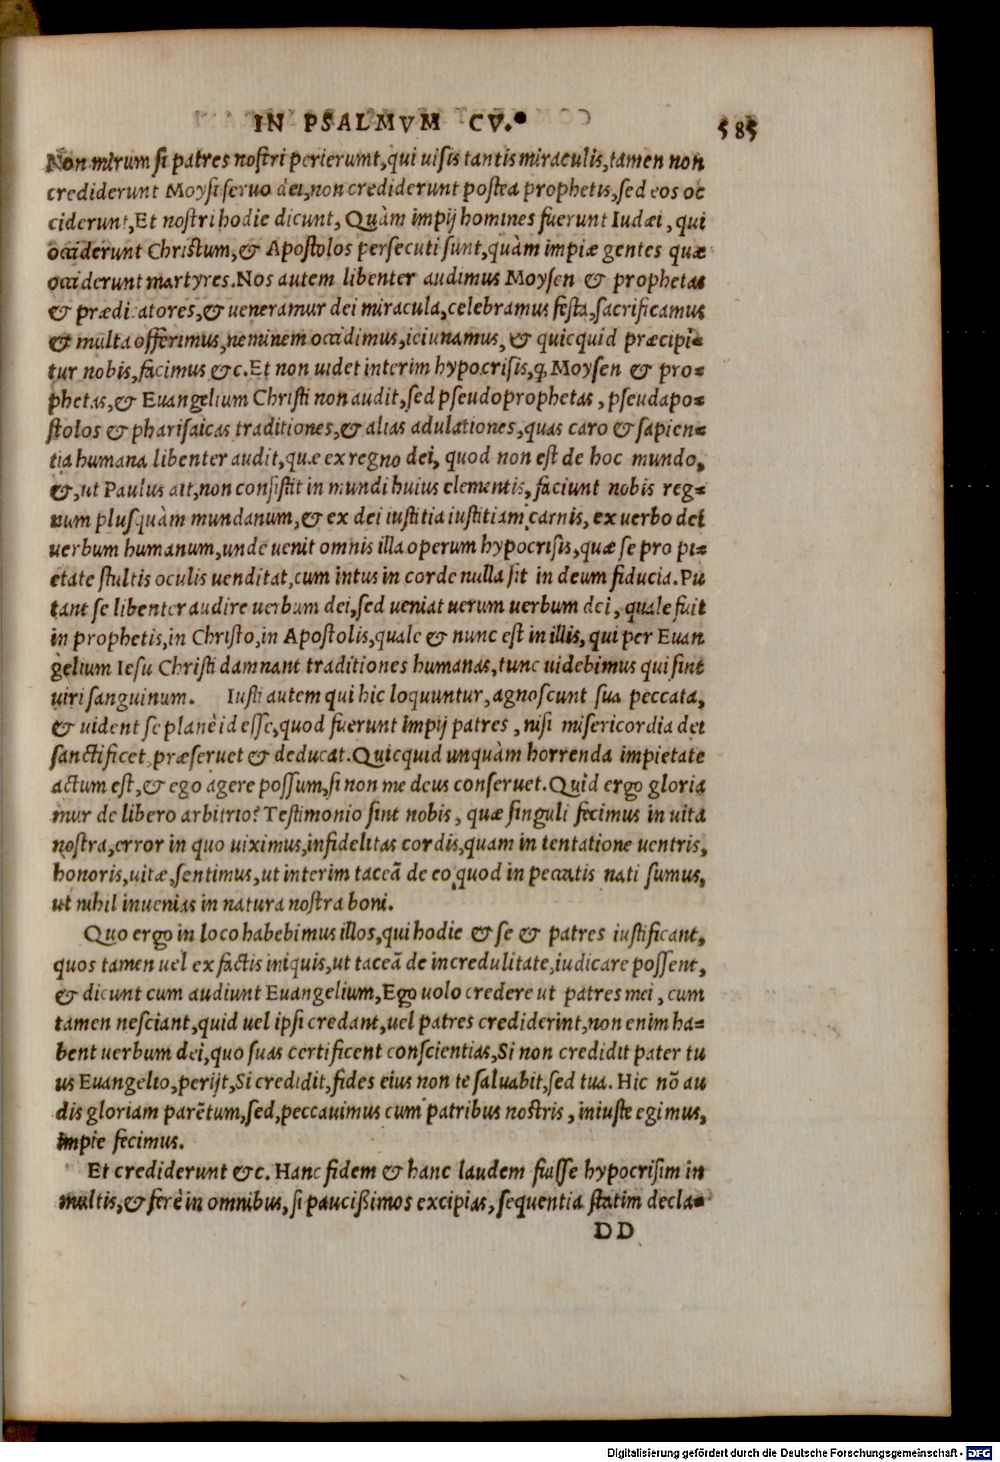 IN PSALMVM CV. 585
Non mirum si patres nostri perierunt, qui uisis tantis miraculis, tamen non
crediderunt Moysi seruo dei, non crediderunt postea prophetis, sed eos oc
ciderunt, Et nostri hodie dicunt, Quàm impij homines fuerunt Iudæi, qui
occiderunt Christum, & Apostolos persecuti sunt, quàm impiæ gentes quæ
occiderunt martyres. Nos autem libenter audimus Moysen & prophetas
& prædicatores, & ueneramur dei miracula, celebramus festa, sacrificamus
& multa offerimus, neminem occidimus, ieiunamus, & quicquid præcipi-
tur nobis, facimus &c. Et non uidet interim hypocrisis, ꝙ Moysen & pro-
phetas, & Euangelium Christi non audit, sed pseudoprophetas, pseudapo-
stolos & pharisaicas traditiones, & alias adulationes, quas caro & sapien-
tia humana libenter audit, quæ ex regno dei, quod non est de hoc mundo,
&, ut Paulus ait, non consistit in mundi huius elementis, faciunt nobis reg-
num plusquàm mundanum, & ex dei iustitia iustitiam carnis, ex uerbo dei
uerbum humanum, unde uenit omnis illa operum hypocrisis, quæ se pro pi-
etate stultis oculis uenditat, cum intus in corde nulla sit in deum fiducia. Pu
tant se libenter audire uerbum dei, sed ueniat uerum uerbum dei, quale fuit
in prophetis, in Christo, in Apostolis, quale & nunc est in illis, qui per Euan
gelium Iesu Christi damnant traditiones humanas, tunc uidebimus qui sint
uiri sanguinum. Iusti autem qui hic loquuntur, agnoscunt sua peccata,
& uident se planè id esse, quod fuerunt impij patres, nisi misericordia dei
sanctificet, præseruet & deducat. Quicquid unquàm horrenda impietate
actum est, & ego agere possum, si non me deus conseruet. Quid ergo gloria
mur de libero arbitrio? Testimonio sint nobis, quæ singuli fecimus in uita
nostra, error in quo uiximus, infidelitas cordis, quam in tentatione uentris,
honoris, uitæ, sentimus, ut interim taceā de eo quod in peccatis nati sumus,
ut nihil inuenias in natura nostra boni.
Quo ergo in loco habebimus illos, qui hodie & se & patres iustificant,
quos tamen uel ex factis iniquis, ut taceā de incredulitate, iudicare possent,
& dicunt cum audiunt Euangelium, Ego uolo credere ut patres mei, cum
tamen nesciant, quid uel ipsi credant, uel patres crediderint, non enim ha-
bent uerbum dei, quo suas certificent conscientias, Si non credidit pater tu
us Euangelio, perijt, Si credidit, fides eius non te saluabit, sed tua. Hic nō au
dis gloriam parētum, sed, peccauimus cum patribus nostris, iniuste egimus,
impie fecimus.
Et crediderunt &c. Hanc fidem & hanc laudem fuisse hypocrisim in
multis, & ferè in omnibus, si paucißimos excipias, sequentia statim decla-
DD
Digitalisierung gefördert durch die Deutsche Forschungsgemeinschaft - DFG